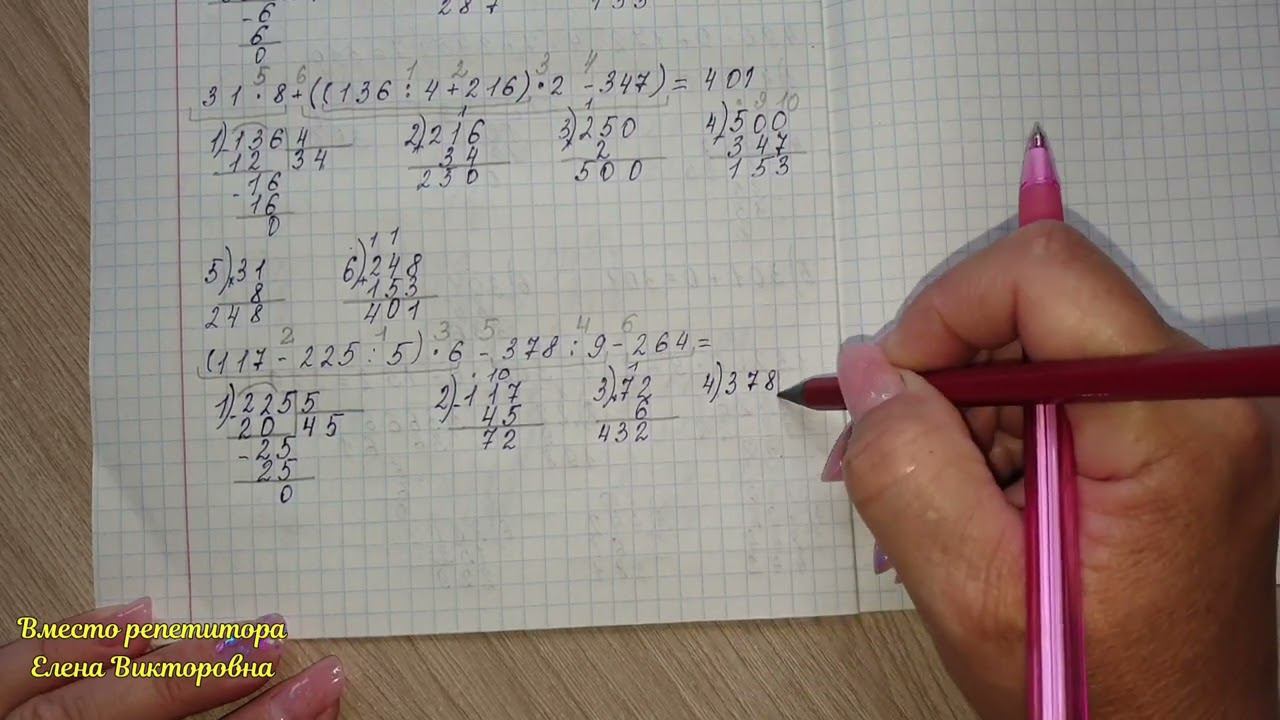 -6
287
133
6
0
5 6 1 2 3 4
31 · 8 + ((136 : 4 + 216) · 2 - 347) = 401
1) 136 4 2) 216 3) 250 4) 500
12 34 34 2 347
-16 250 500 153
16
0
1 1
5) 31 6) 248
8 153
248 401
2 1 3 5 4 6
(117 - 225 : 5) · 6 - 378 : 9 - 264 =
1) 225 5 2) 117 3) 72 4) 378
20 45 45 6
-25 72 432
25
0
Вместо репетитора
Елена Викторовна